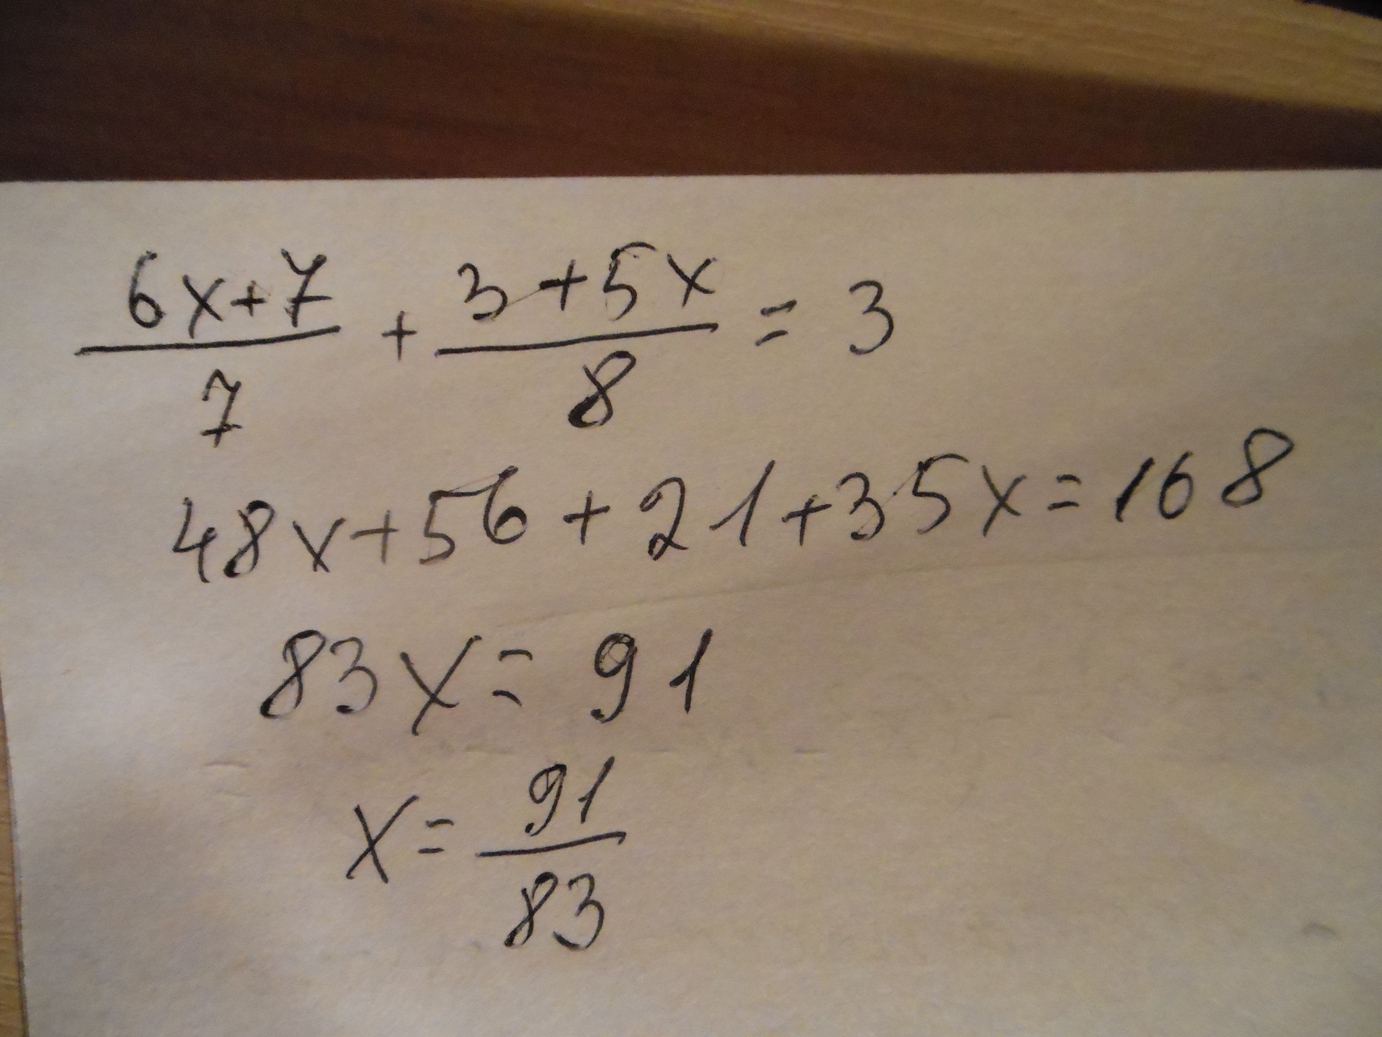 (6x+7)/7 + (3+5x)/8 = 3
48x+56+21+35x=168
83x=91
x=91/83